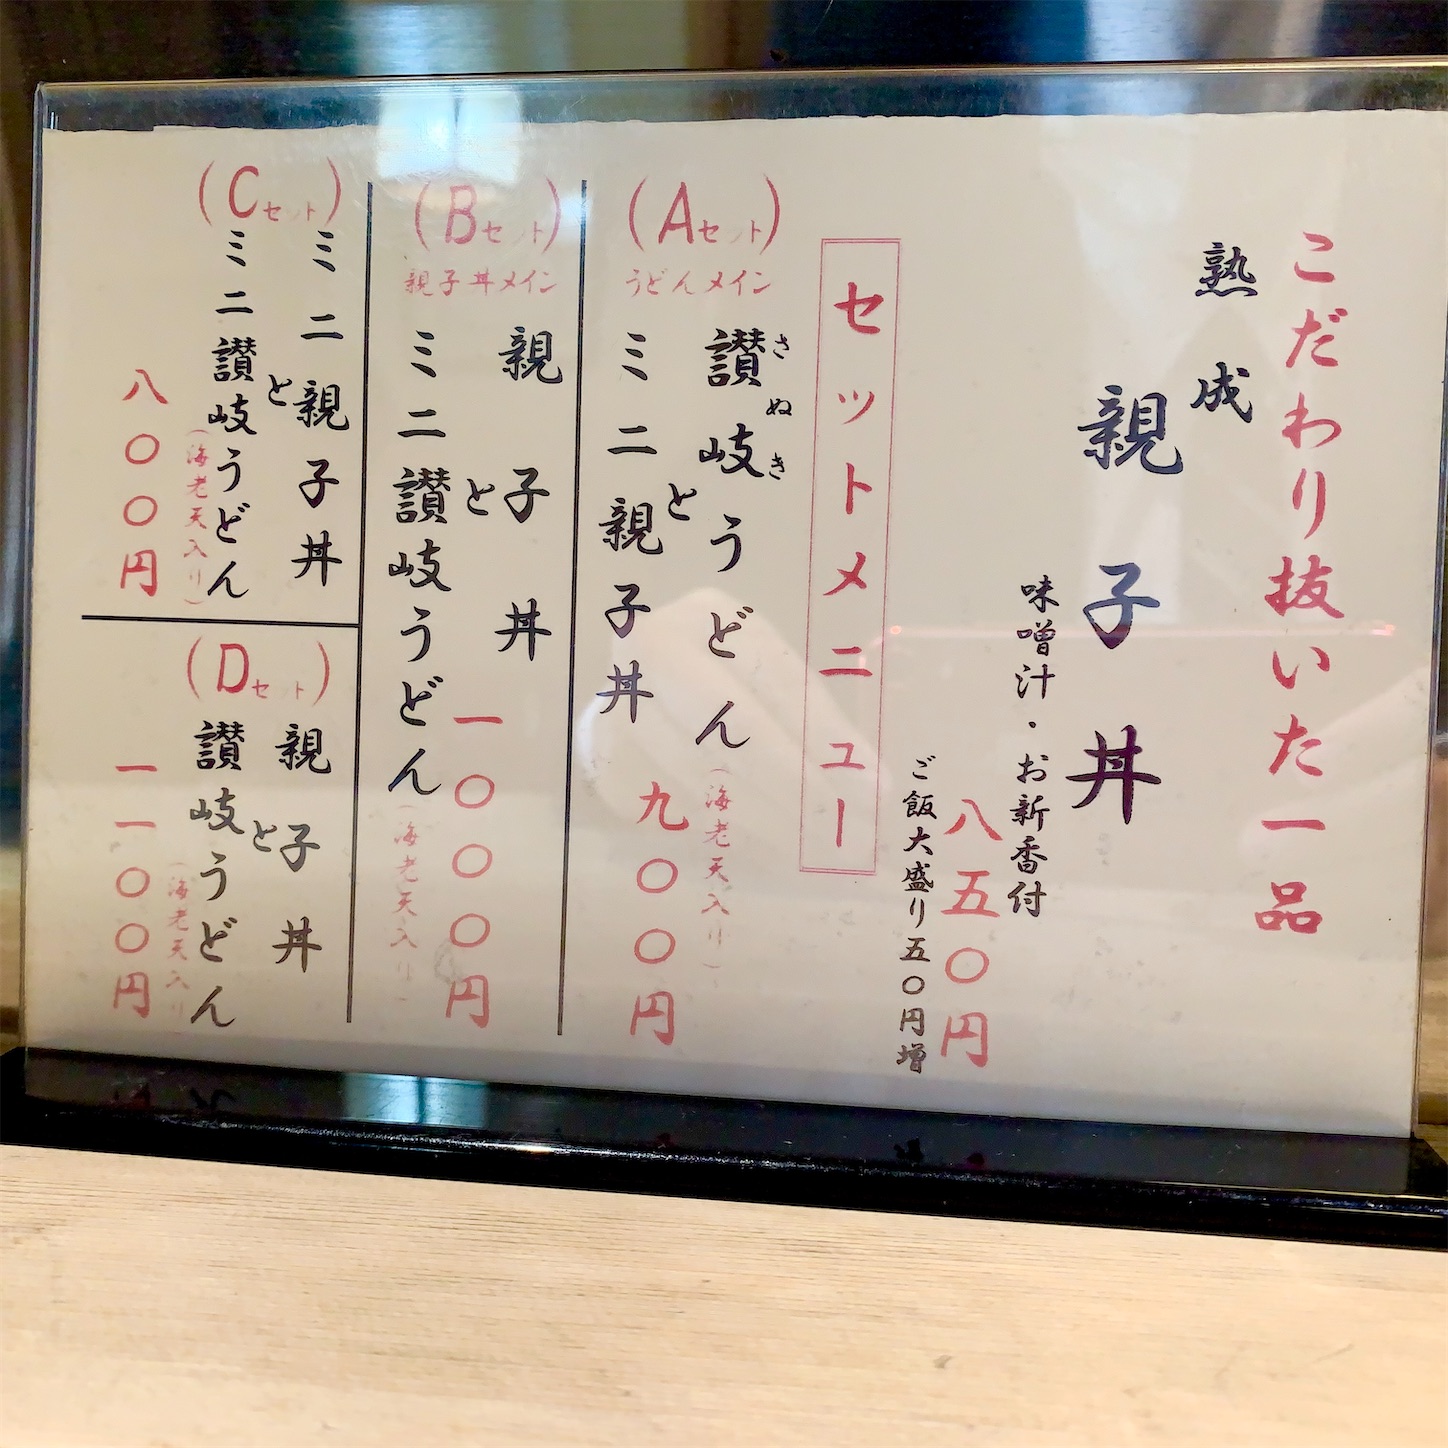 こだわり抜いた一品
熟成
親子丼
味噌汁・お新香付
八五〇円
ご飯大盛り五〇円増
セットメニュー
(Aセット)
うどんメイン
讃岐うどん
さぬき
(海老天入り)
と
ミニ親子丼
九〇〇円
(Bセット)
親子丼メイン
親子丼
と
ミニ讃岐うどん
(海老天入り)
一〇〇〇円
(Cセット)
ミニ親子丼
と
ミニ讃岐うどん
(海老天入り)
八〇〇円
(Dセット)
親子丼
と
讃岐うどん
(海老天入り)
一一〇〇円